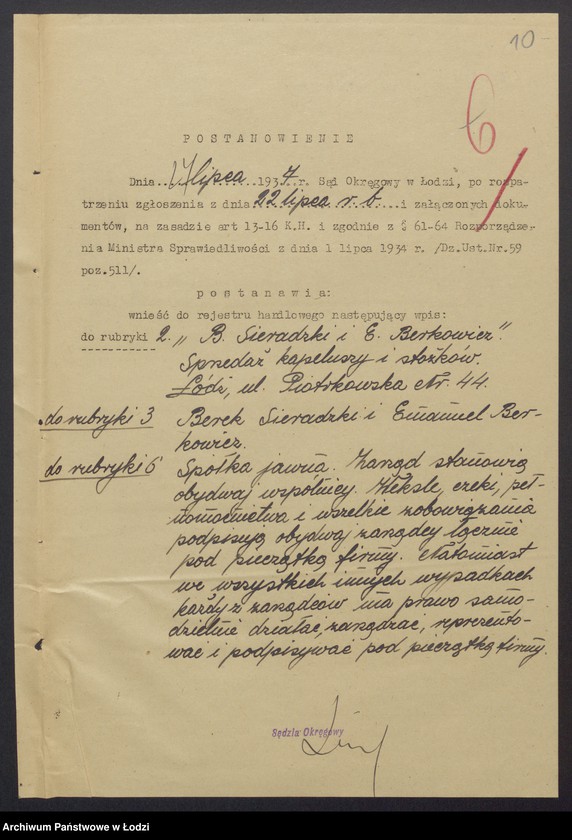 10
6
POSTANOWIENIE
Dnia...17 lipca...1937.r. Sąd Okręgowy w Łodzi, po rozpa-
trzeniu zgłoszenia z dnia 22 lipca r. b....i załączonych doku-
mentów, na zasadzie art 13-16 K.H. i zgodnie z § 61-64 Rozporządze-
nia Ministra Sprawiedliwości z dnia 1 lipca 1934 r. /Dz.Ust.Nr.59
poz.511/.
postanawia:
wnieść do rejestru handlowego następujący wpis:
do rubryki 2. „B. Sieradzki i E. Berkowicz".
Sprzedaż kapeluszy i stożków.
Łódź, ul. Piotrkowska Nr. 44.
do rubryki 3 Berek Sieradzki i Emanuel Ber-
kowicz.
do rubryki 6 Spółka jawna. Zarząd stanowią
obydwaj wspólnicy. Weksle, czeki, peł-
nomocnictwa i wszelkie zobowiązania
podpisują obydwaj zarządcy łącznie
pod pieczątką firmy. Natomiast
we wszystkich innych wypadkach
każdy z zarządców ma prawo samo-
dzielnie działać, zarządzać, reprezento-
wać i podpisywać pod pieczątką firmy.
Sędzia Okręgowy
Archiwum Państwowe w Łodzi